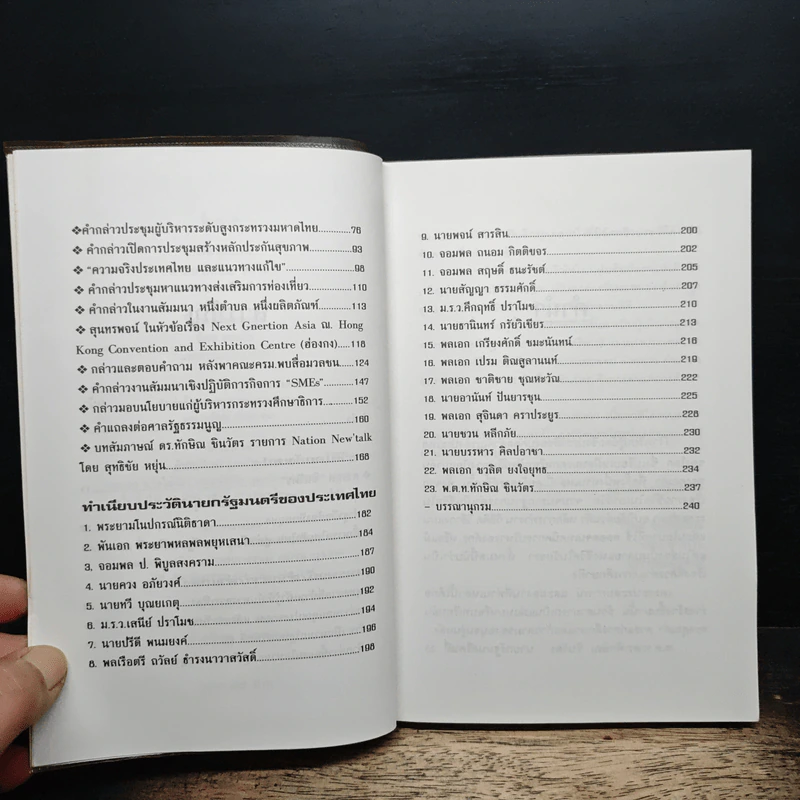 ❖คำกล่าวประชุมผู้บริหารระดับสูงกระทรวงมหาดไทย............76
❖ คำกล่าวเปิดการประชุมสร้างหลักประกันสุขภาพ............93
❖ "ความจริงประเทศไทย และแนวทางแก้ไข"............98
❖ คำกล่าวประชุมหาแนวทางส่งเสริมการท่องเที่ยว............110
❖ คำกล่าวในงานสัมมนา หนึ่งตำบล หนึ่งผลิตภัณฑ์............113
❖ สุนทรพจน์ ในหัวข้อเรื่อง Next Gnertion Asia ณ. Hong
Kong Convention and Exhibition Centre (ฮ่องกง)............118
❖ กล่าวและตอบคำถาม หลังพาคณะครม.พบสื่อมวลชน............124
❖ คำกล่าวงานสัมมนาเชิงปฏิบัติการกิจการ "SMEs"............147
❖ กล่าวมอบนโยบายแก่ผู้บริหารกระทรวงศึกษาธิการ............152
❖ คำแถลงต่อศาลรัฐธรรมนูญ............160
❖ บทสัมภาษณ์ ดร.ทักษิณ ชินวัตร รายการ Nation New'talk
โดย สุทธิชัย หยุ่น............168
ทำเนียบประวัตินายกรัฐมนตรีของประเทศไทย
1. พระยามโนปกรณ์นิติธาดา............182
2. พันเอก พระยาพหลพลพยุหเสนา............184
3. จอมพล ป. พิบูลสงคราม............187
4. นายควง อภัยวงศ์............190
5. นายทวี บุณยเกตุ............192
6. ม.ร.ว.เสนีย์ ปราโมช............194
7. นายปรีดี พนมยงค์............196
8. พลเรือตรี ถวัลย์ ธำรงนาวาสวัสดิ์............198
9. นายพจน์ สารสิน............200
10. จอมพล ถนอม กิตติขจร............202
11. จอมพล สฤษดิ์ ธนะรัชต์............205
12. นายสัญญา ธรรมศักดิ์............207
13. ม.ร.ว.คึกฤทธิ์ ปราโมช............210
14. นายธานินทร์ กรัยวิเชียร............213
15. พลเอก เกรียงศักดิ์ ชมะนันทน์............216
16. พลเอก เปรม ติณสูลานนท์............219
17. พลเอก ชาติชาย ชุณหะวัณ............222
18. นายอานันท์ ปันยารชุน............225
19. พลเอก สุจินดา คราประยูร............228
20. นายชวน หลีกภัย............230
21. นายบรรหาร ศิลปอาชา............232
22. พลเอก ชวลิต ยงใจยุทธ............234
23. พ.ต.ท.ทักษิณ ชินวัตร............237
- บรรณานุกรม............240